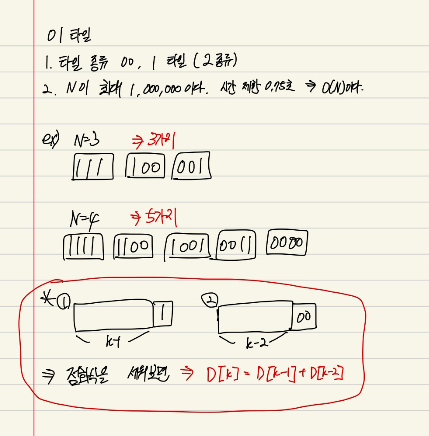 01 타일
1. 타일 종류 00, 1 타일 (2종류)
2. N이 최대 1,000,000이다. 시간 제한 0.75초 ⇒ O(N)이다.
ex) N=3 ⇒ 3가지
111 100 001
N=4 ⇒ 5가지
1111 1100 1001 0011 0000
* ① 1 ② 00
k-1 k-2
⇒ 점화식을 세워보면 ⇒ D[k] = D[k-1] + D[k-2]